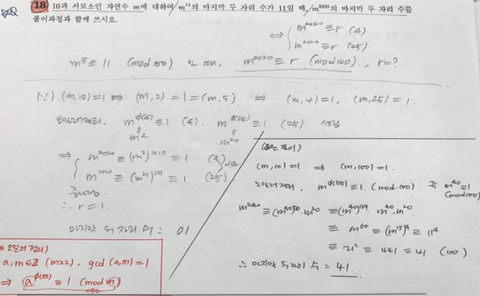 18 10과 서로소인 자연수 m에 대하여 m¹⁵의 마지막 두 자리 수가 11일 때, m²⁰²⁰의 마지막 두 자리 수를
풀이과정과 함께 쓰시오.
⇔ { m²⁰²⁰ ≡ r (4)
m²⁰²⁰ ≡ r (25)
m¹⁵ ≡ 11 (mod 100) m²⁰²⁰ ≡ r (mod 100), r=?
(∵) (m,10)=1 ⇔ (m,2)=1=(m,5) ⇔ (m,4)=1, (m,25)=1.
m^φ(4) ≡ 1 (4). m^φ(25) ≡ 1 (25)
m² m²⁰
⇒ { m²⁰²⁰ ≡ (m²)¹⁰¹⁰ ≡ 1 (4)
m²⁰²⁰ ≡ (m²⁰)¹⁰¹ ≡ 1 (25)
∴ r=1.
마지막 두 자리 수 : 01.
(m,10)=1 ⇒ (m,100)=1
m^φ(100) ≡ 1 (mod 100) 즉 m⁴⁰ ≡ 1 (mod 100)
m²⁰²⁰ ≡ (m⁴⁰)⁵⁰·m²⁰ ≡ m⁴⁰·m²⁰
≡ m⁶⁰ ≡ (m¹⁵)⁴ ≡ 11⁴
≡ 21² ≡ 441 ≡ 41 (100)
∴ 마지막 두 자리 수 = 41.
* 오일러 정리
a, m∈Z (m≥2), gcd(a,m)=1
⇒ a^φ(m) ≡ 1 (mod m)